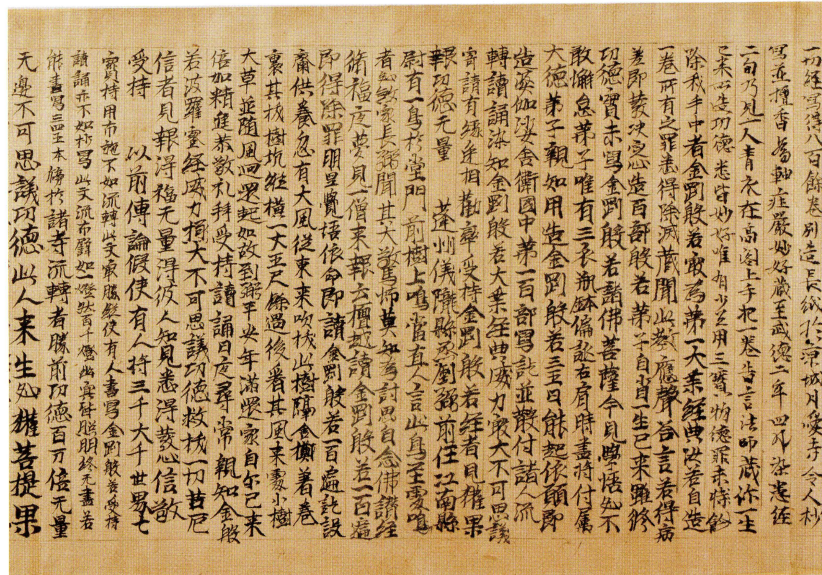 一切經寫得八百餘卷別造長紙於京城月愛寺令人抄
寫並檀香為軸莊嚴妙好藏至武德二年四月染患經
二旬乃見一人青衣在高閣上手把一卷告言法師藏你一生
已來所造功德悉皆妙好唯有少互用三寶物德罪未特
除我手中者金剛般若最為第一大業經典汝若自造
一卷所有之罪悉得除滅藏聞此教應聲答言若得病
差即發決定造百部般若弟子自省一生已來雖修
功德實未寫金剛般若諸佛菩薩今見覺悟必不
敢懈怠弟子唯有三衣瓶鉢偏袒右肩時盡將付屬
大德弟子親知用造金剛般若三五日能起依願即
造渡伽沙舍衛國中第一百部寫訖並散付諸人流
轉讀誦海知金剛般若大業經典威力最大不可思議
宵請有緣遞相勸率受持金剛般若經者見獲果
報功德無量 蓬州儀隴縣丞劉弼前任江南縣
尉有一鳥於堂門前樹上鳴當直人言此鳥至靈鳴
者必家長弼聞其大驚怖莫知為計思自念佛讚經
術福夜夢見一僧來報云檀越讀金剛般若一百遍
即得除罪明旦覺悟依命即讀金剛般若一百遍訖設
齋供養忽有大風從東來吹拔此樹隔舍擲著巷
裏其拔樹坑縱橫一丈五尺餘過後看其風來處小樹
大草並隨風迴還起如故到弼平安年滿還家自尔已來
倍加精進恭敬礼拜受持讀誦日夜尋常親知金般
若波羅蜜經威力損大不可思議功德救拔一切苦厄
信者見報淂福无量淂彼人知見悉淂發心信敬
受持 以前傳論假使有人將三千大千世界七
寶持用布施不如流轉此文最勝縱使有人書寫金剛般若受持
讀誦亦不如抄寫此文流布譬如一燈然百千燈幽冥皆照明終无盡若
能書寫三四五本勝於諸寺流轉者勝前功德百万倍无量
无邊不可思議功德此人來生必獲菩提果